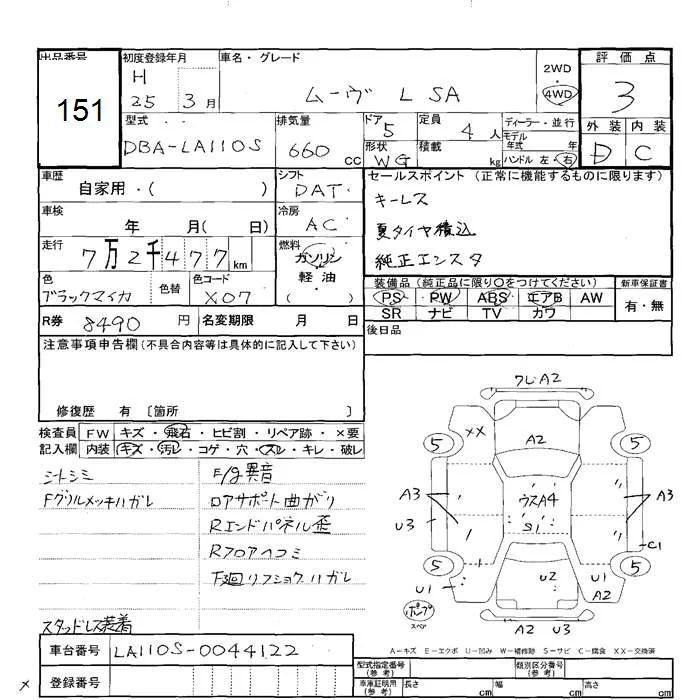 出品番号
151
初度登録年月
H
25 3月
車名・グレード
ムーヴ L SA
2WD
・
4WD
評価点
3
外装 内装
D C
型式
DBA-LA110S
排気量
660 cc
ドア
5
定員
4 人
形状
WG
積載
kg
ディーラー・並行
モデル
年式 年
ハンドル 左・右
車歴
自家用・( )
シフト
DAT
車検
年 月( 日)
冷房
AC
走行
7万2千477 km
燃料
ガソリン
軽・油
( )
色
ブラックマイカ
色替
色コード
X07
R券 8490 円
名変期限 月 日
セールスポイント (正常に機能するものに限ります)
キーレス
夏タイヤ積込
純正エンスタ
装備品 (純正品に限り○をつけてください)
PS PW ABS エアB AW
SR ナビ TV カワ
新車保証書
有・無
後日品
注意事項申告欄(不具合内容等は具体的に記入して下さい)
修復歴 有 〔箇所 〕
検査員
記入欄
FW キズ・飛石・ヒビ割・リペア跡・×要
内装 キズ・汚レ・コゲ・穴・スレ・キレ・破レ
シートシミ
Fグリルメッキハガレ
スタッドレス装着
E/g異音
ロアサポート曲がり
Rエンドパネル歪
Rフロアヘコミ
F廻リフショクハガレ
ワレA2
XX
A2
5
5
A3
U3
ウスA4
S1
A3
C1
5
5
U1
U2
U1
A2
ポンプ
スペア
A2 U3
A-キズ E-エクボ U-凹み W-補修跡 S-サビ C-腐食 XX-交換済
車台番号 LA110S-0044122
×
登録番号
型式指定番号
(参考)
類別区分番号
(参考)
車庫証明用
(参考)
長さ cm
幅 cm
高さ cm